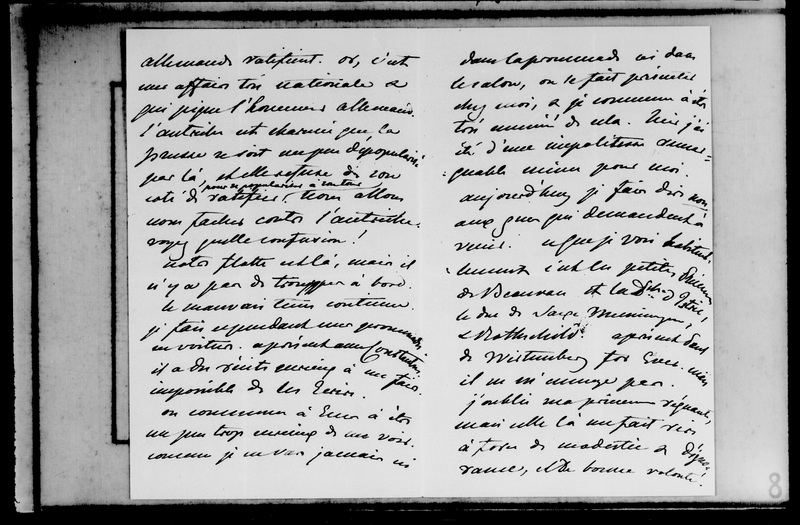 allemands ratifient. or, c'est
une affaire très nationale &
qui pique l'honneur allemand.
l'autriche est charmée que la
prusse se soit un peu depopularisée
par là, et elle refuse de son
coté de ratifier,
pour se populariser à son tour
nous allons
nous facher contre l'autriche.
voyez quelle confusion!
notre flotte est là, mais il
n'y a pas de trouppes à bord.
le mauvais tems continue.
je fais cependant une promenade
en voiture. après cela Constantin.
il a des récits curieux à me faire.
impossible de les écrire.
on commence à Ems à être
un peu trop curieux de me voir.
comme je ne vais jamais ni
dans la promenade ni dans
le salon, on se fait présenter
chez moi, & je commence à être
très ennuyé de cela. hier j'ai
été d'une impolitesse remar-
quable même pour moi.
aujourd'huy je fais dire non
aux gens qui demandent à
venir. ce que je vois habituel-
lement c'est les petites Princesses
de Beauvau et la Dsse d'Istrie,
le duc de Saxe Meiningen,
& Rothschild. après cela
de Wurtemberg mais
il ne m'amuse pas.
j'oublie ma princesse régnante,
mais celle là me fait rire
à force de modestie &
et de bonne volonté!
8